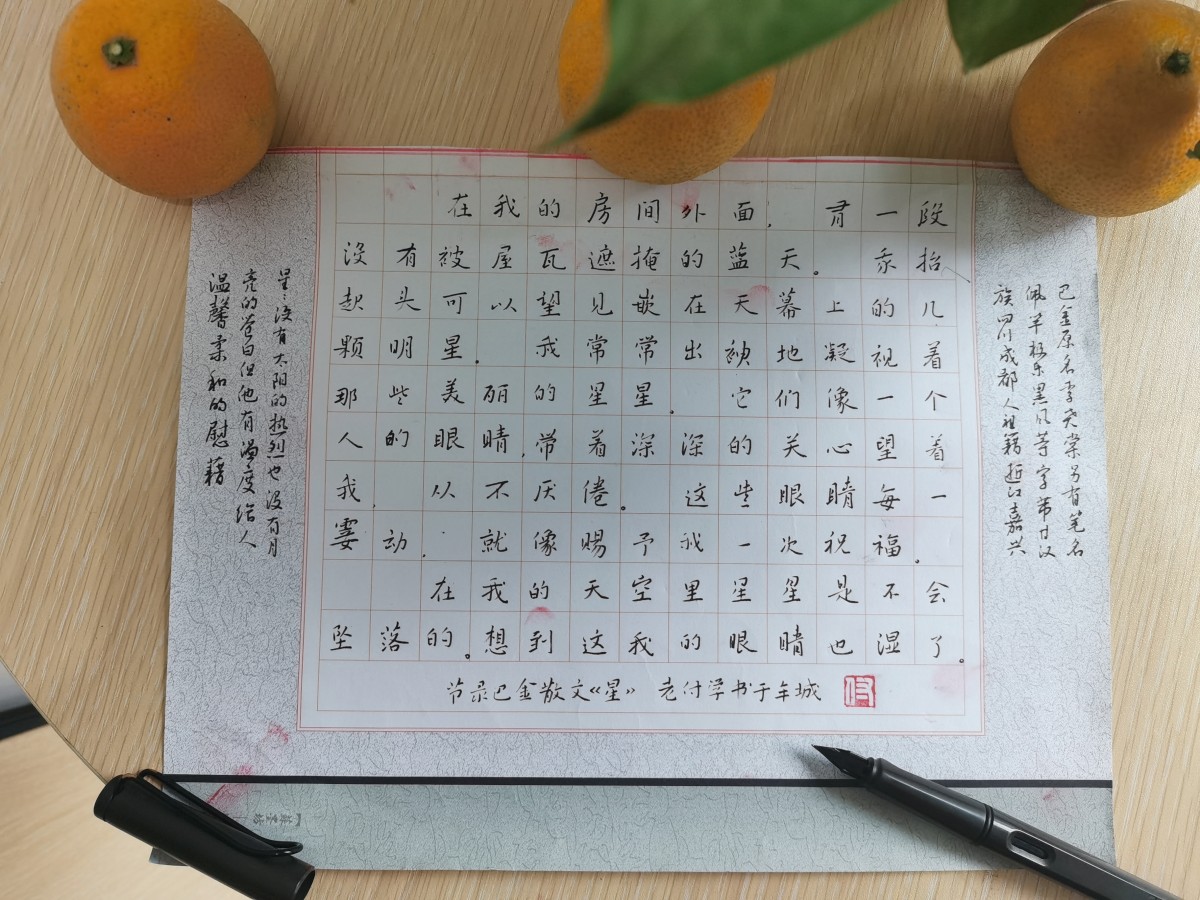 在我的房间外面，有一段
没有被屋瓦遮掩的蓝天。我抬
起头可以望见嵌在天幕上的几
颗明星。我常常出神地凝视着
那些美丽的星星。它们像一个
人的眼睛，带着深深的关心望着
我，从不厌倦。这些眼睛每一
霎动，就像赐予我一次祝福。
在我的天空里星星是不会
坠落的。想到这我的眼睛也湿了。
节录巴金散文《星》 老付学书于丰城
付
巴金原名李尧棠另有笔名
佩竿极乐黑风等字芾甘汉
族四川成都人祖籍浙江嘉兴
星:没有太阳的热烈也没有月
亮的苍白但他有温度给人
温馨柔和的慰藉